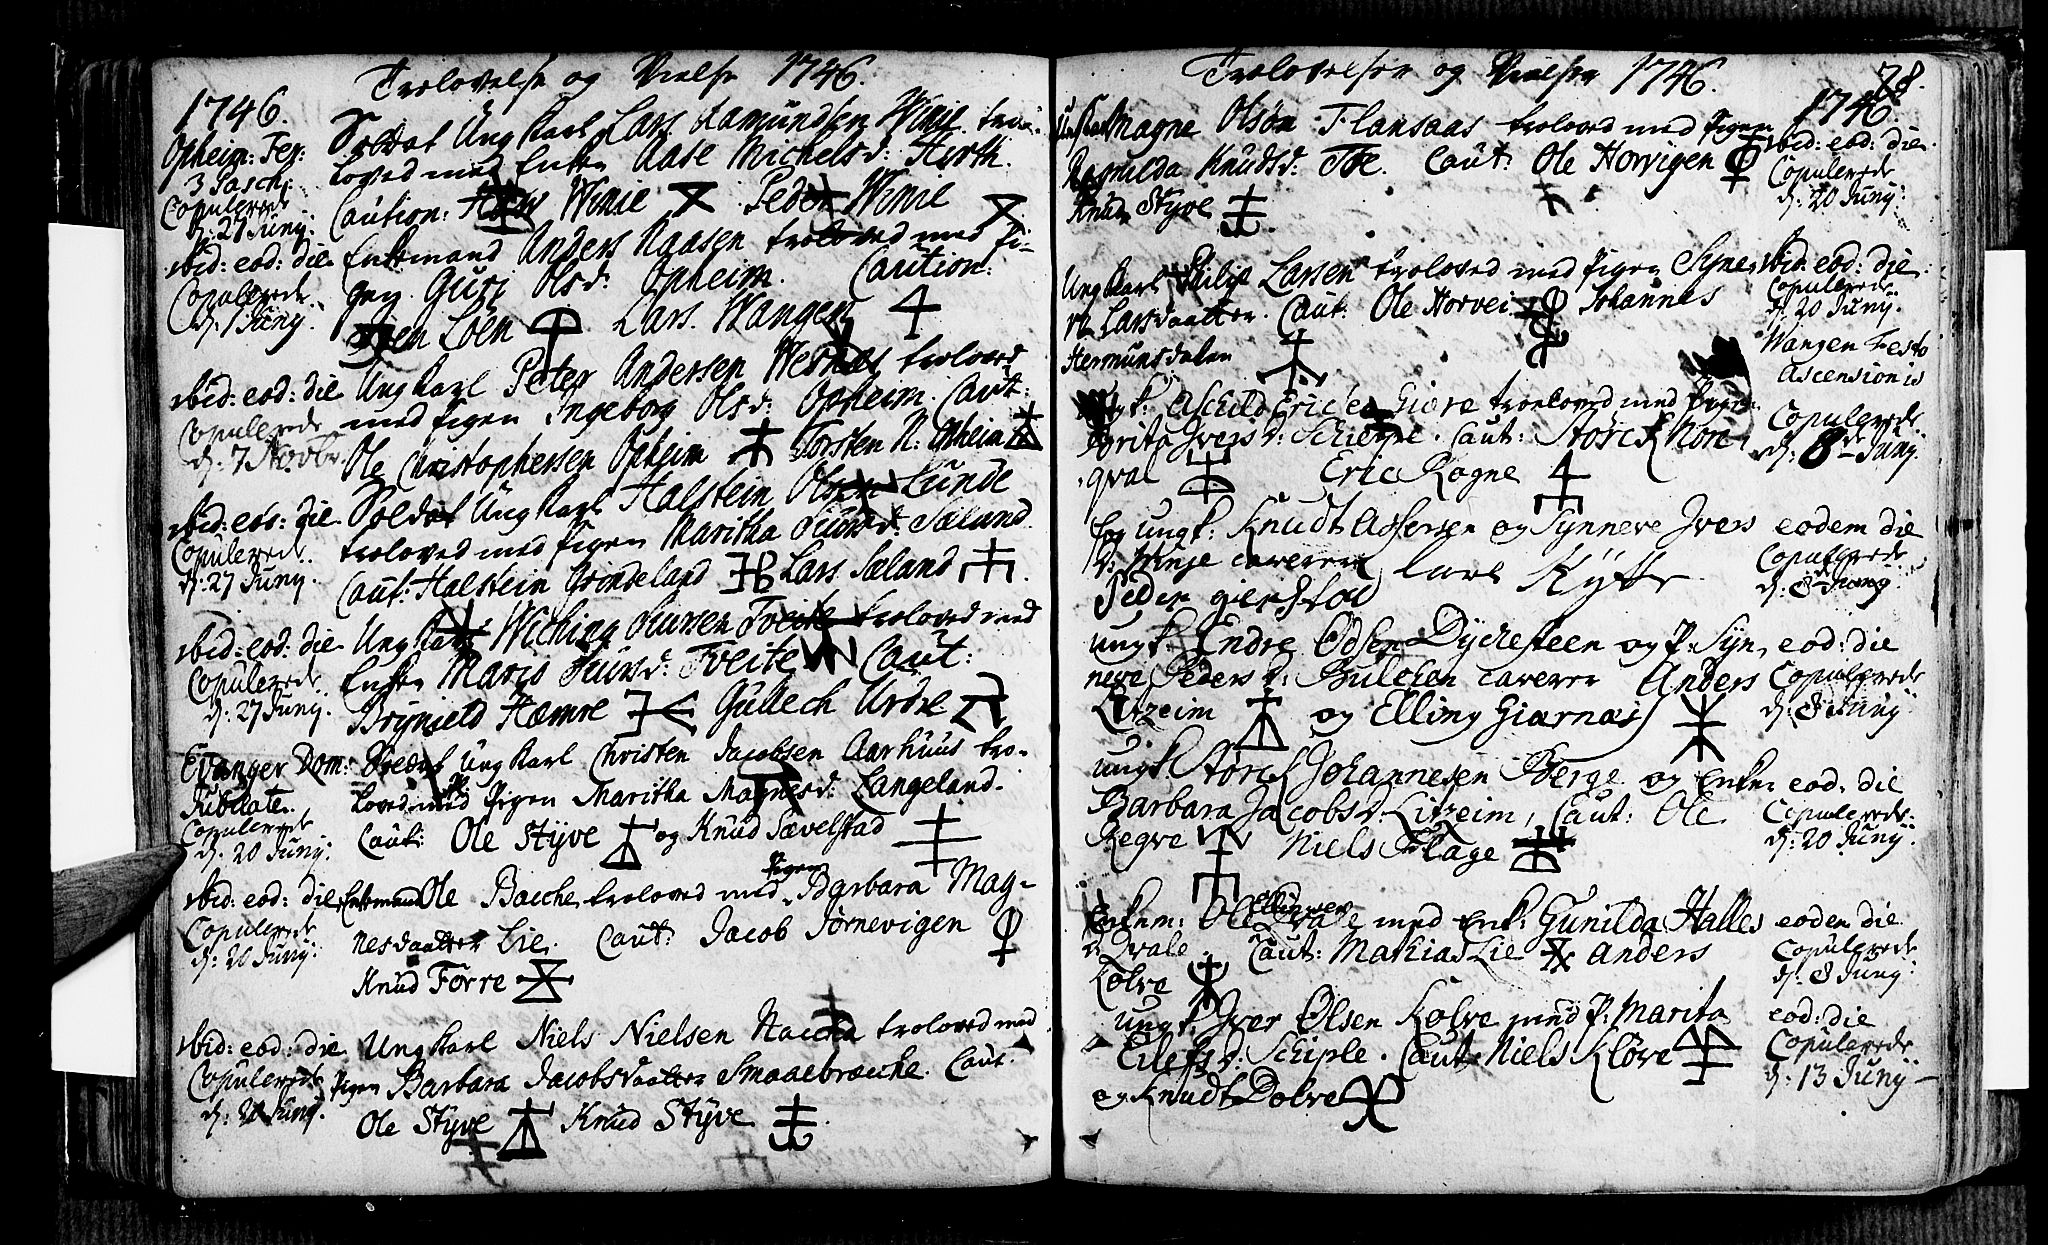 Trolovelse og Vielse 1746.
1746.
Opheim: Fer:
3 Pasch:
Copulerede
d: 27 Junÿ:
Soldat Ung Karl Lars Aamundsen Winie tro-
loved med Enken Aase Michelsd: Hirth.
Caution: Winie Peder Winie
ibid: eod: die
Copulerede
d: 1 Junÿ:
Enkemand Anders Aaasen troloved med Pi-
gen Guri Olsd: Opheim. Caution:
Løen Lars Wangen
ibid: eod: die
Copulerede
d: 7 Novbr.
Ung Karl Peter Andersen troloved
med Pigen Ingeborg Olsd: Opheim. Caut:
Ole Christophersen Opheim Torsten N: Opheim
ibid: eod: die
Copulerede
d: 27 Junÿ:
Soldat Ung Karl Halstein Olsen Lunde
troloved med Pigen Maritha Siursd: Sæland.
Caut: Halstein Grindeland Lars Sæland
ibid: eod: die
Copulerede
d: 27 Junÿ.
Ung Karl Wiching Siursen Tveite troloved med
Enken Maris Siursd: Tveite Caut:
Brÿnield Hæmre Gullech Urdre
Evanger Dom:
Jubilate.
Copulerede
d: 20 Junÿ:
Ung Karl Christen Jacobsen Aarhuus tro-
loved med Pigen Maritha Magnesd: Langeland.
Caut: Ole Stÿve og Knud Sævelstad
ibid: eod: die
Copulerede
d: 20 Junÿ:
Enkemand Ole Bacche troloved med Pigen Barbara Mag-
nesdaatter Lie. Caut: Jacob Jørnevigen
Knud Førre
ibid: eod: die
Copulerede
d: 20 Junÿ:
Ung Karl Niels Nielsen troloved med
Pigen Barbara Jacobsdaatter Smaabrecke. Caut.
Ole Stÿve Knud Stÿve
Trolovelser og Vielser 1746.
78.
1746
Magne Olsøn Flansaas troloved med Pigen
Ragnilda Knudsd: Tøe. Caut: Ole Horvigen
Knud Stÿve
ibid: eod: die.
Copulerede
d: 20 Junÿ:
Ung Karl Philip Larsen troloved med Pigen Syne-
ve Larsdaatter. Caut: Ole Horvei Johannes
Hermunsdalen
ibid: eod: die:
Copulerede
d: 20 Junÿ:
Wangen Festo
Ascensionis
Copulerede
d: 8de Junÿ.
Ungk: Aschild Ericsen Giøre troeloved med Pigen
Brita Ivers d: Schierpe. Caut: Storck Nore
qval Eric Rogne
Og ungk: Knudt Assersen og Synneve Ivers
d: Winje caverer Lars Kÿtte
Peder gierstad
eodem die
Copulerede
d: 8de Junÿ
ungk: Endre Odsen Dÿckesteen og P: Syn
neve Peders d: Bulchen caverer Anders
Litzeim og Elling Giærnæs
eod: die
Copulerede
d: 8 Junÿ
ungk Storck Johannesen Berge og Enken
Barbara Jacobs d: Litzeim, Caut: Ole
Regve Niels Flage
eod: die
Copulerede
d: 20 Junÿ:
Enkem: Ole Ellingsen Qvale med Enk: Gunilda Halles
d: Qvale Caut: Mathias Lie Anders
Kolve
eodem die
Copulerede
d: 8 Junÿ:
ungk: Iver Olsen Kolve med P: Marita
Eilefs d: Schiple. Caut: Niels Kløve
og Knudt Dolve
eod: die
Copulerede
d: 13 Junÿ